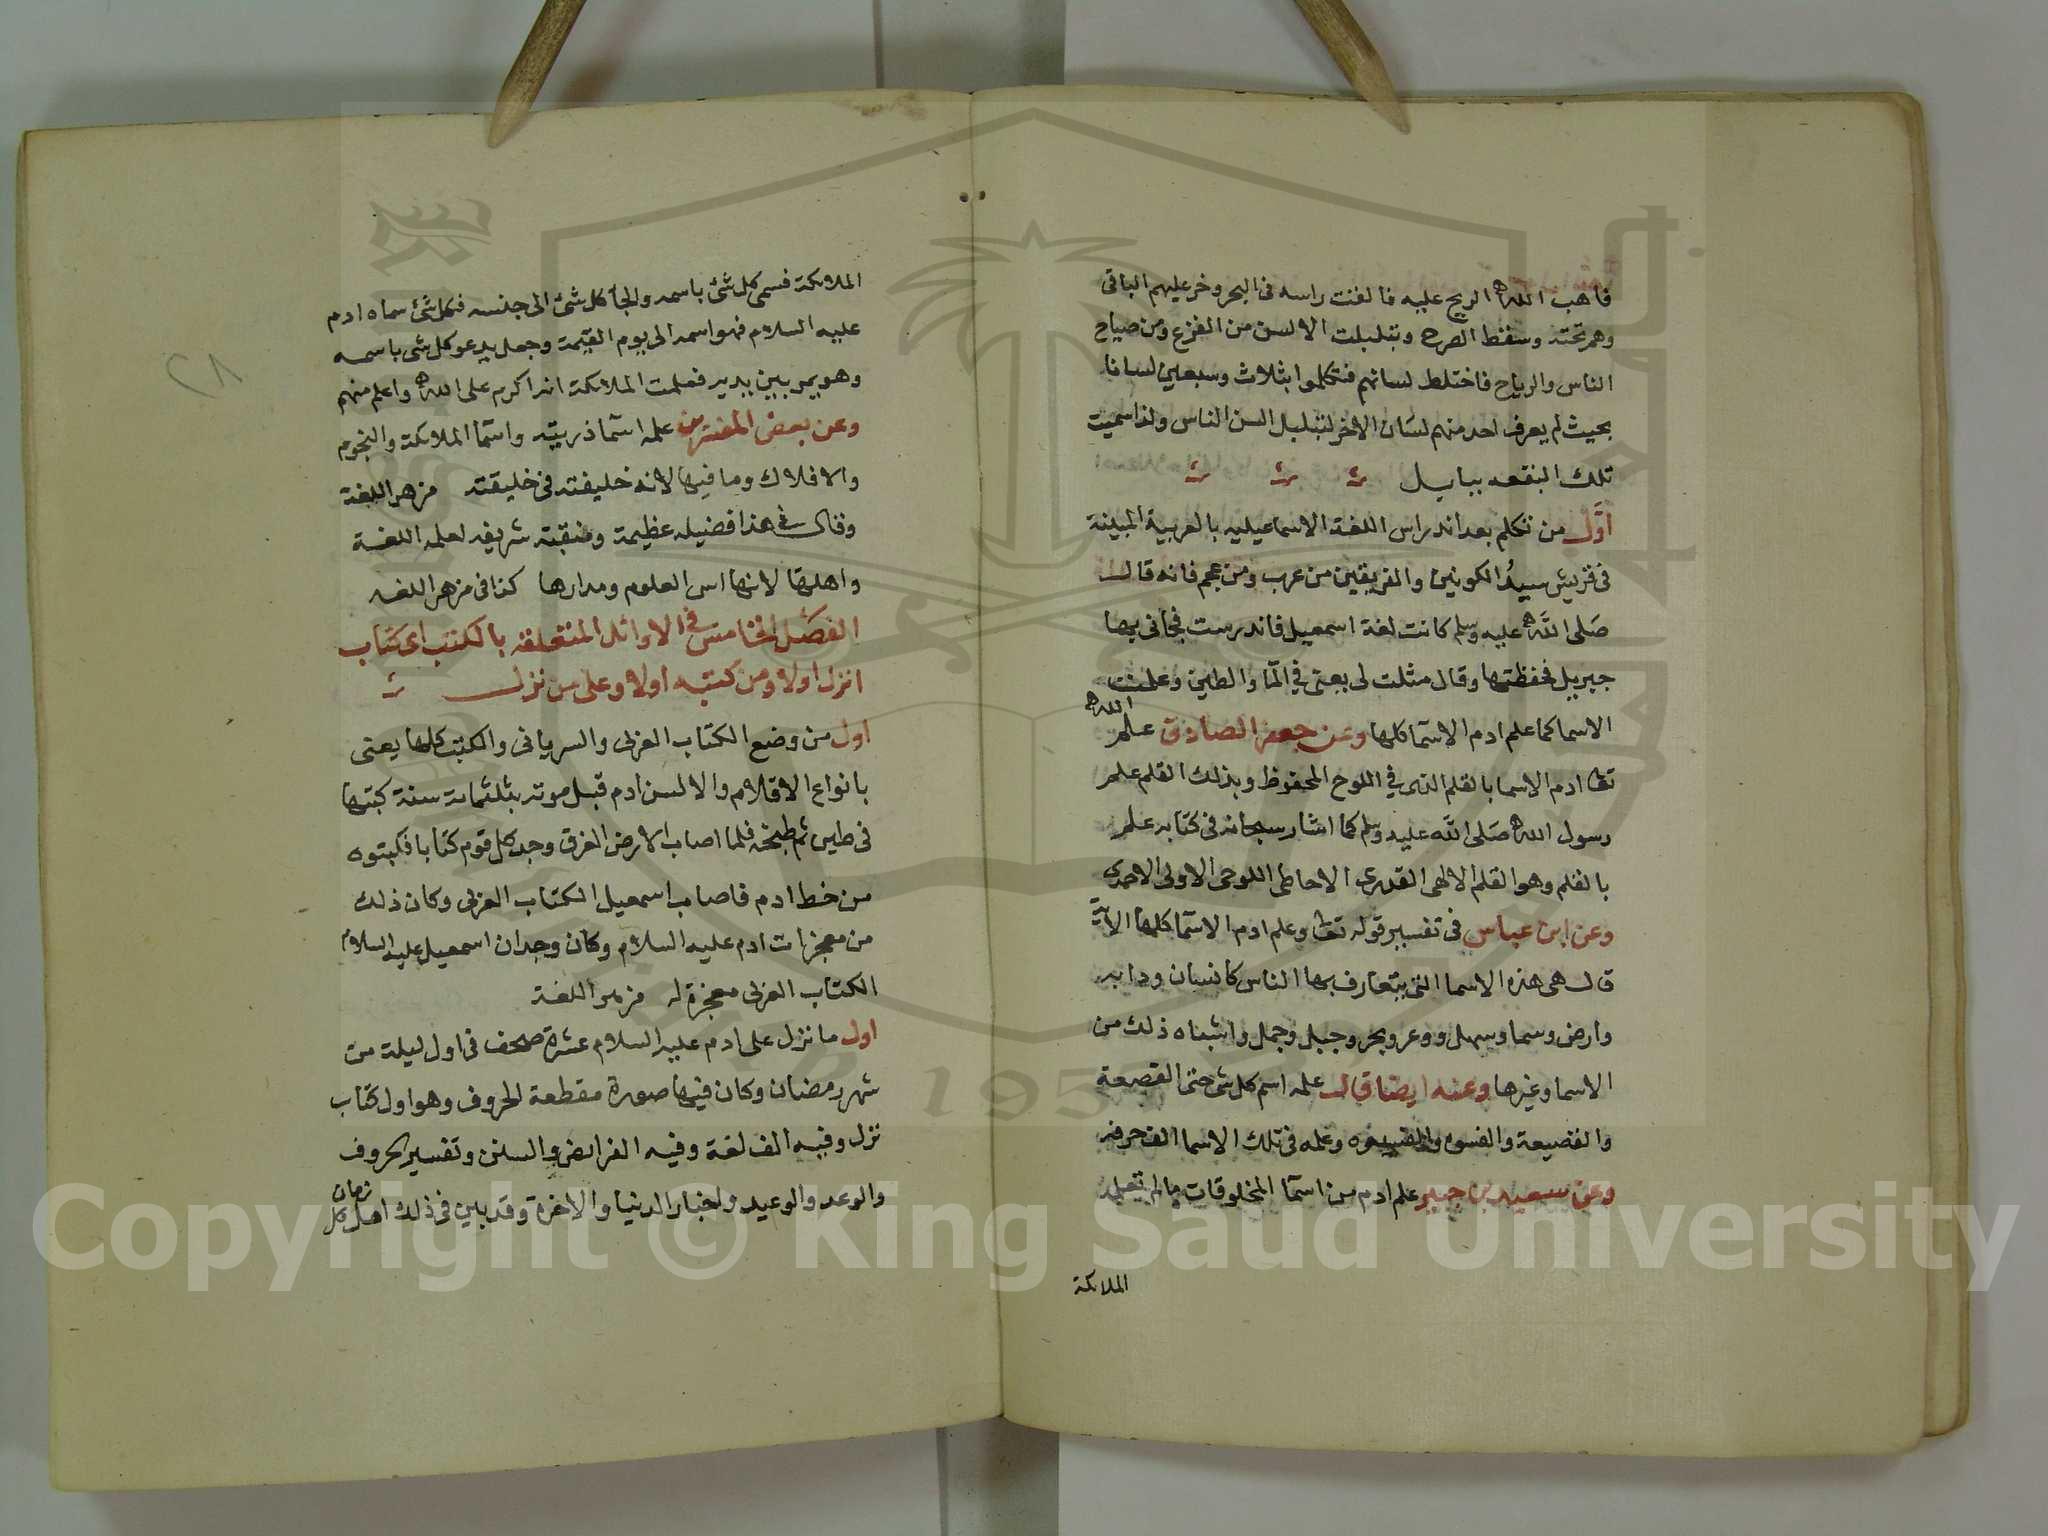 فاهب الله الريح عليه فالقت راسه فى البحر وخر عليهم الباقى
وهم تحته وسقط الصرح وتبلبلت الالسن من الفزع ومن صياح
الناس والرياح فاختلط لسانهم فتكلموا بثلاث وسبعين لسانا
بحيث لم يعرف احد منهم لسان الاخر لتبلبل السن الناس ولذا سميت
تلك البقعه ببابل
اول من تكلم بعد اندراس اللغة الاسماعيليه بالعربية المبينة
فى قريش سيد الكونين والفريقين من عرب ومن عجم فانه قال
صلى الله عليه وسلم كانت لغة اسمعيل قد اندرست فجانى بها
جبريل فحفظتها وقال مثلت لى يعنى في المآ والطين وعلمت
الاسما كما علم ادم الاسما كلها وعن جعفر الصادق علم الله
تعا ادم الاسما بالقلم الذى في اللوح المحفوظ وبذلك القلم علم
رسول الله صلى الله عليه وسلم كما اشار سبحانه فى كتابه علم
بالقلم وهو القلم الالهى القدرى الاحاطى اللوحى الاولى الاحدى
وعن ابن عباس فى تفسير قوله تعا وعلم ادم الاسمآ كلها الآية
قال هى هذه الاسما التى يتعارف بها الناس كانسان ودابه
وارض وسما وسهل ووعر وبحر وجبل وجمل واشباه ذلك من
الاسما وغيرها وعنه ايضا قال علمه اسم كل شى حتى القصعة
والقصيعة والفسوه وعلمه فى تلك الاسما الف حرفه
وعن سعيد بن جبير علم ادم من اسمآ المخلوقات مالم تعلمه
الملائكة
٢٨
الملائكة فسمى كل شئ باسمه والجأ كل شئ الى جنسه فكل شئ سماه ادم
عليه السلام فهو اسمه الى يوم القيمة وجعل يدعو كل شى باسمه
وهو يمر بين يديه فعلمت الملائكة انه اكرم على الله واعلم منهم
وعن بعض المفسرين علمه اسمآ ذريته واسمآ الملائكة والنجوم
والافلاك وما فيها لانه خليفته فى خليقته مزهر اللغة
وقال فى هذا فضيله عظيمة ومنقبة شريفه لعلمه اللغة
واهلها لانها اس العلوم ومدارها كذا فى مزهر اللغه
الفصل الخامس في الاوائل المتعلقه بالكتب اى كتاب
انزل اولا ومن كتبه اولا وعلى من نزل
اول من وضع الكتاب العربى والسريانى والكتب كلها يعنى
بانواع الاقلام والالسن ادم قبل موته بثلثماة سنة كتبها
فى طين ثم طبخه فلما اصاب الارض الغرق وجد كل قوم كتابا فكتبوه
من خط ادم فاصاب اسمعيل الكتاب العربى وكان ذلك
من معجزات ادم عليه السلام وكان وجدان اسمعيل عليه السلام
الكتاب العربى معجزة له مزهر اللغة
اول ما نزل على ادم عليه السلام عشرة صحف فى اول ليلة من
شهر رمضان وكان فيها صورة مقطعة الحروف وهو اول كتاب
نزل وفيه الف لغة وفيه الفرائض والسنن وتفسير الحروف
والوعد والوعيد واخبار الدنيا والاخرة وقد بين فى ذلك اهل كل زمان
Copyright © King Saud University
1957